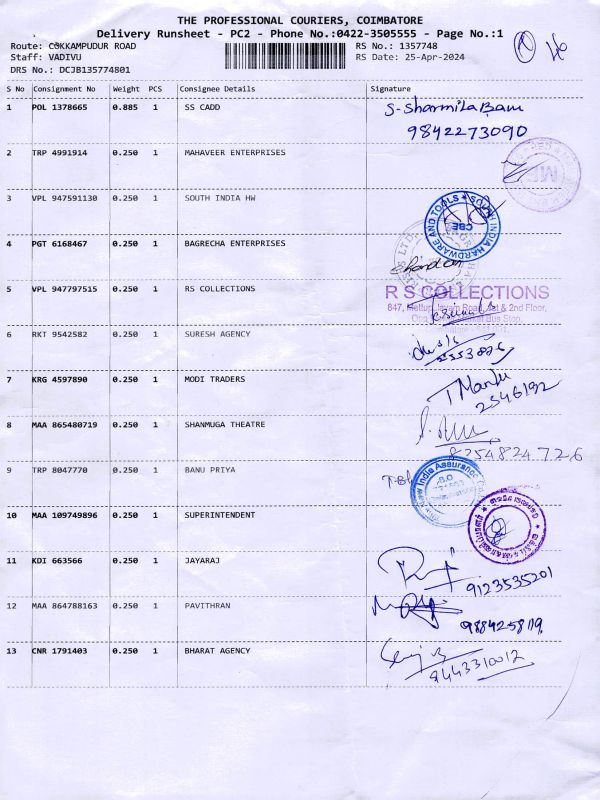 THE PROFESSIONAL COURIERS, COIMBATORE
Delivery Runsheet - PC2 - Phone No.:0422-3505555 - Page No.:1
Route: COKKAMPUDUR ROAD RS No.: 1357748
Staff: VADIVU RS Date: 25-Apr-2024
DRS No.: DCJB135774801
S No Consignment No Weight PCS Consignee Details Signature
1 POL 1378665 0.885 1 SS CADD S-Sharmila Banu
9842273090
2 TRP 4991914 0.250 1 MAHAVEER ENTERPRISES
3 VPL 947591130 0.250 1 SOUTH INDIA HW
SOUTH INDIA HARDWARE AND TOOLS CBE
4 PGT 6168467 0.250 1 BAGRECHA ENTERPRISES
5 VPL 947797515 0.250 1 RS COLLECTIONS R S COLLECTIONS
847, Mettupalayam Road, 1st & 2nd Floor,
6 RKT 9542582 0.250 1 SURESH AGENCY
7 KRG 4597890 1 0.250 MODI TRADERS T Manju
2546192
8 MAA 865480719 0.250 1 SHANMUGA THEATRE
8254824726
9 TRP 8047770 0.250 1 BANU PRIYA
India Assurance
10 MAA 109749896 0.250 1 SUPERINTENDENT
11 KDI 663566 0.250 1 JAYARAJ
9123535201
12 MAA 864788163 0.250 1 PAVITHRAN
13 CNR 1791403 0.250 1 BHARAT AGENCY
9443310012